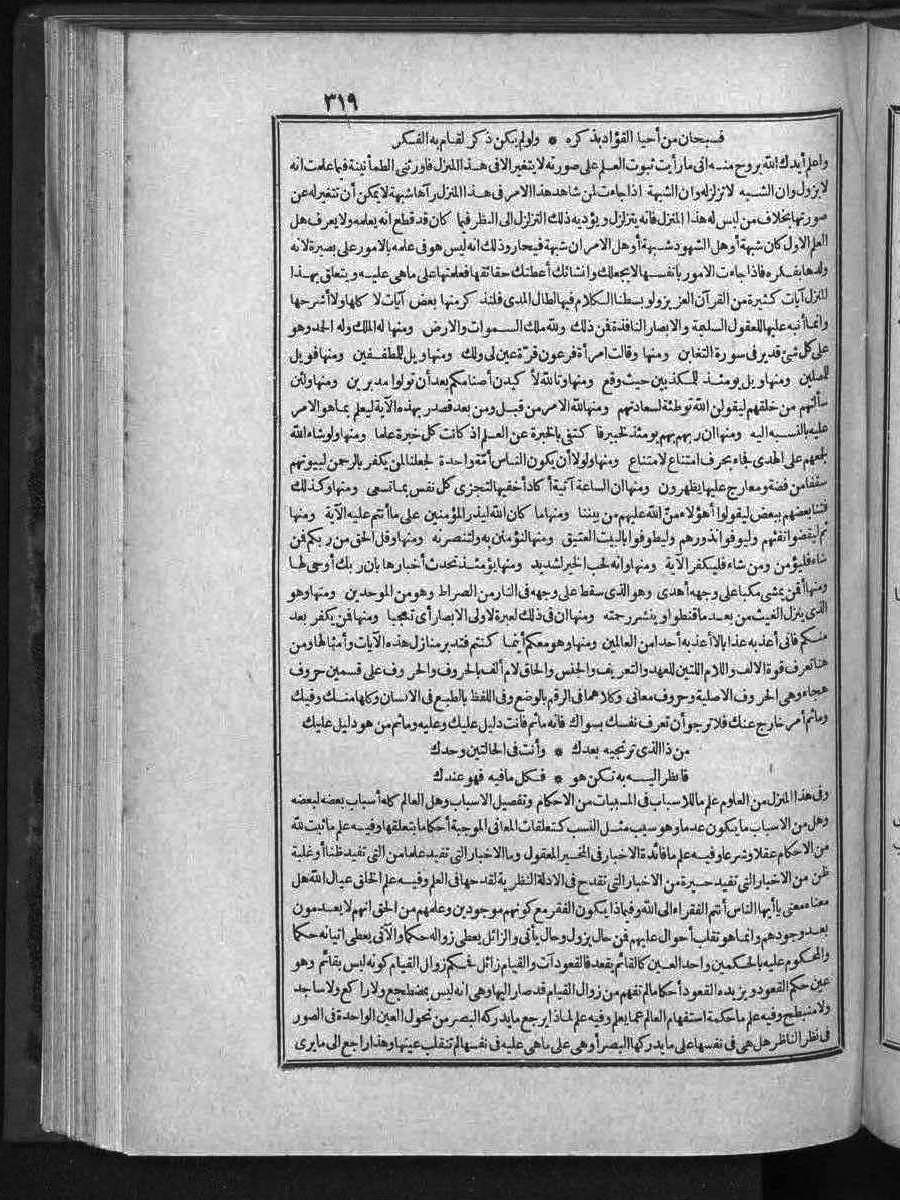 ٣١٩
فسبحان من أحيا الفؤاد بذكره * ولولم يكن ذكر لقام به الفكر
واعلم أيدك الله بروح منه انى مارأيت ثبوت العلم على صورته لايتغير الافى هذا المنزل فاورثنى الطمأنينة فيما علمت انه
لا يزول وان الشبه لاتزلزله وان الشبهة اذا جاءت لمن شاهد هذا الامر فى هذا المنزل رآها شبهة لايمكن أن تتغير له عن
صورتها بخلاف من ليس له هذا المنزل فانه يتزلزل ويؤديه ذلك التزلزل الى النظر فيما كان قد قطع انه يعلمه ولا يعرف هل
العلم الاول كان شبهة أوهل المشهود شبهة أوهل الامر ان شبهة فيحار وذلك انه ليس هو فى علمه بالامور على بصيرة لانه
ولدها بفكره فاذا جاءت الامور بانفسها لا بجعلك وانشائك أعطتك حقائقها فعلمتها على ماهى عليه ويتعلق بهذا
المنزل آيات كثيرة من القرآن العزيز ولو بسطنا الكلام فيها لطال المدى فلنذكر منها بعض آيات لا كلها ولا أشرحها
وانما أنبه عليها للعقول السليمة والابصار النافذة فمن ذلك ولله ملك السموات والارض ومنها له الملك وله الحمد وهو
على كل شئ قدير فى سورة التغابن ومنها وقالت امرأة فرعون قرّة عين لى ولك ومنها ويل للمطففين ومنها فويل
للمصلين ومنها ويل يومئذ للمكذبين حيث وقع ومنها وتالله لأ كيدن أصنامكم بعد أن تولوا مدبرين ومنها ولئن
سألتهم من خلقهم ليقولن الله توطئة لسعادتهم ومنها لله الامر من قبل ومن بعد فصدر بهذه الآية ليعلم بما هو الامر
عليه بالنسبه اليه ومنها ان ربهم بهم يومئذ لخبير فا كتفى بالخبرة عن العلم اذ كانت كل خبرة علما ومنها ولوشاء الله
لجمعهم على الهدى فجاء بحرف امتناع لامتناع ومنها ولولا أن يكون الناس أمّة واحدة لجعلنا لمن يكفر بالرحمن لبيوتهم
سقفا من فضة ومعارج عليها يظهرون ومنها ان الساعة آتية أ كاد أخفيها لتجزى كل نفس بما تسعى ومنها وكذلك
فتنا بعضهم ببعض ليقولوا أهؤلاء منّ الله عليهم من بيننا ومنها ما كان الله ليذر المؤمنين على ما أنتم عليه الآية ومنها
ثم ليقضوا تفثهم وليوفوا نذورهم وليطوفوا بالبيت العتيق ومنها لتؤمنن به ولتنصرنه ومنها وقل الحق من ربكم فمن
شاء فليؤمن ومن شاء فليكفر الآية ومنها وانه لحب الخير لشديد ومنها يومئذ تحدث أخبارها بان ربك أوحى لها
ومنها أفمن يمشى مكبا على وجهه أهدى وهو الذى سقط على وجهه فى النار من الصراط وهو من الموحدين ومنها وهو
الذى ينزل الغيث من بعد ما قنطوا وينشر رحمته ومنها ان فى ذلك لعبرة لاولى الابصار أى تعجبا ومنها فمن يكفر بعد
منكم فانى أعذبه عذابا لا أعذبه أحدا من العالمين ومنها وهو معكم أينما كنتم فتدبر منازل هذه الآيات وأمثالها ومن
هنا تعرف قوة الالف واللام اللتين للعهد والتعريف والجنس والحاق لام ألف بالحروف والحروف على قسمين حروف
هجاء وهى الحروف الاصلية وحروف معانى وكلاهما فى الرقم بالوضع وفى اللفظ بالطبع فى الانسان وكلها منك وفيك
وماثم أمر خارج عنك فلا ترجو أن تعرف نفسك بسواك فانه ماثم فأنت دليل عليك وعليه وماثم من هو دليل عليك
من ذا الذى ترتجيه بعدك * وأنت فى الحالتين وحدك
فانظر اليه به تكن هو * فكل مافيه فهو عندك
وفى هذا المنزل من العلوم علم ما للاسباب فى المسببات من الاحكام وتفصيل الاسباب وهل العالم كله أسباب بعضه لبعضه
وهل من الاسباب ما يكون عدما وهو سبب مثل النسب كتعلقات المعانى الموجبة أحكاما بتعلقها وفيه علم ما ثبت لله
من الاحكام عقلا وشرعا وفيه علم ما فائدة الاخبار فى المخبر المعقول وما الاخبار التى تفيد علما من التى تفيد ظنا أو غلبة
ظن من الاخبار التى تفيد حيرة من الاخبار التى تقدح فى الادلة النظرية لقدحها فى العلم وفيه علم الخلق عيال الله هل
معناه معنى يا أيها الناس أنتم الفقراء الى الله وفيماذا يكون الفقر مع كونهم موجودين وعلمهم من الحق انهم لا يعدمون
بعد وجودهم وانما هو تقلب أحوال عليهم فمن حال يزول وحال يأتى والزائل يعطى زواله حكما والآتى يعطى اتيانه حكما
والمحكوم عليه بالحكمين واحد العين كالقائم يقعد فالقعود آت والقيام زائل فحكم زوال القيام كونه ليس بقائم وهو
عين حكم القعود ويزيده القعود أحكاما لم تفهم من زوال القيام قد صار اليها وهى انه ليس بمضطجع ولا راكع ولا ساجد
ولا منبطح وفيه علم ما حكمة استفهام العالم عما يعلم وفيه علم لماذا يرجع ما يدركه البصر من تحول العين الواحدة فى الصور
فى نظر الناظر هل هى فى نفسها على ما يدركها البصر أو هى على ما هى عليه فى نفسها لم تنقلب عينها وهذا راجع الى ما يرى